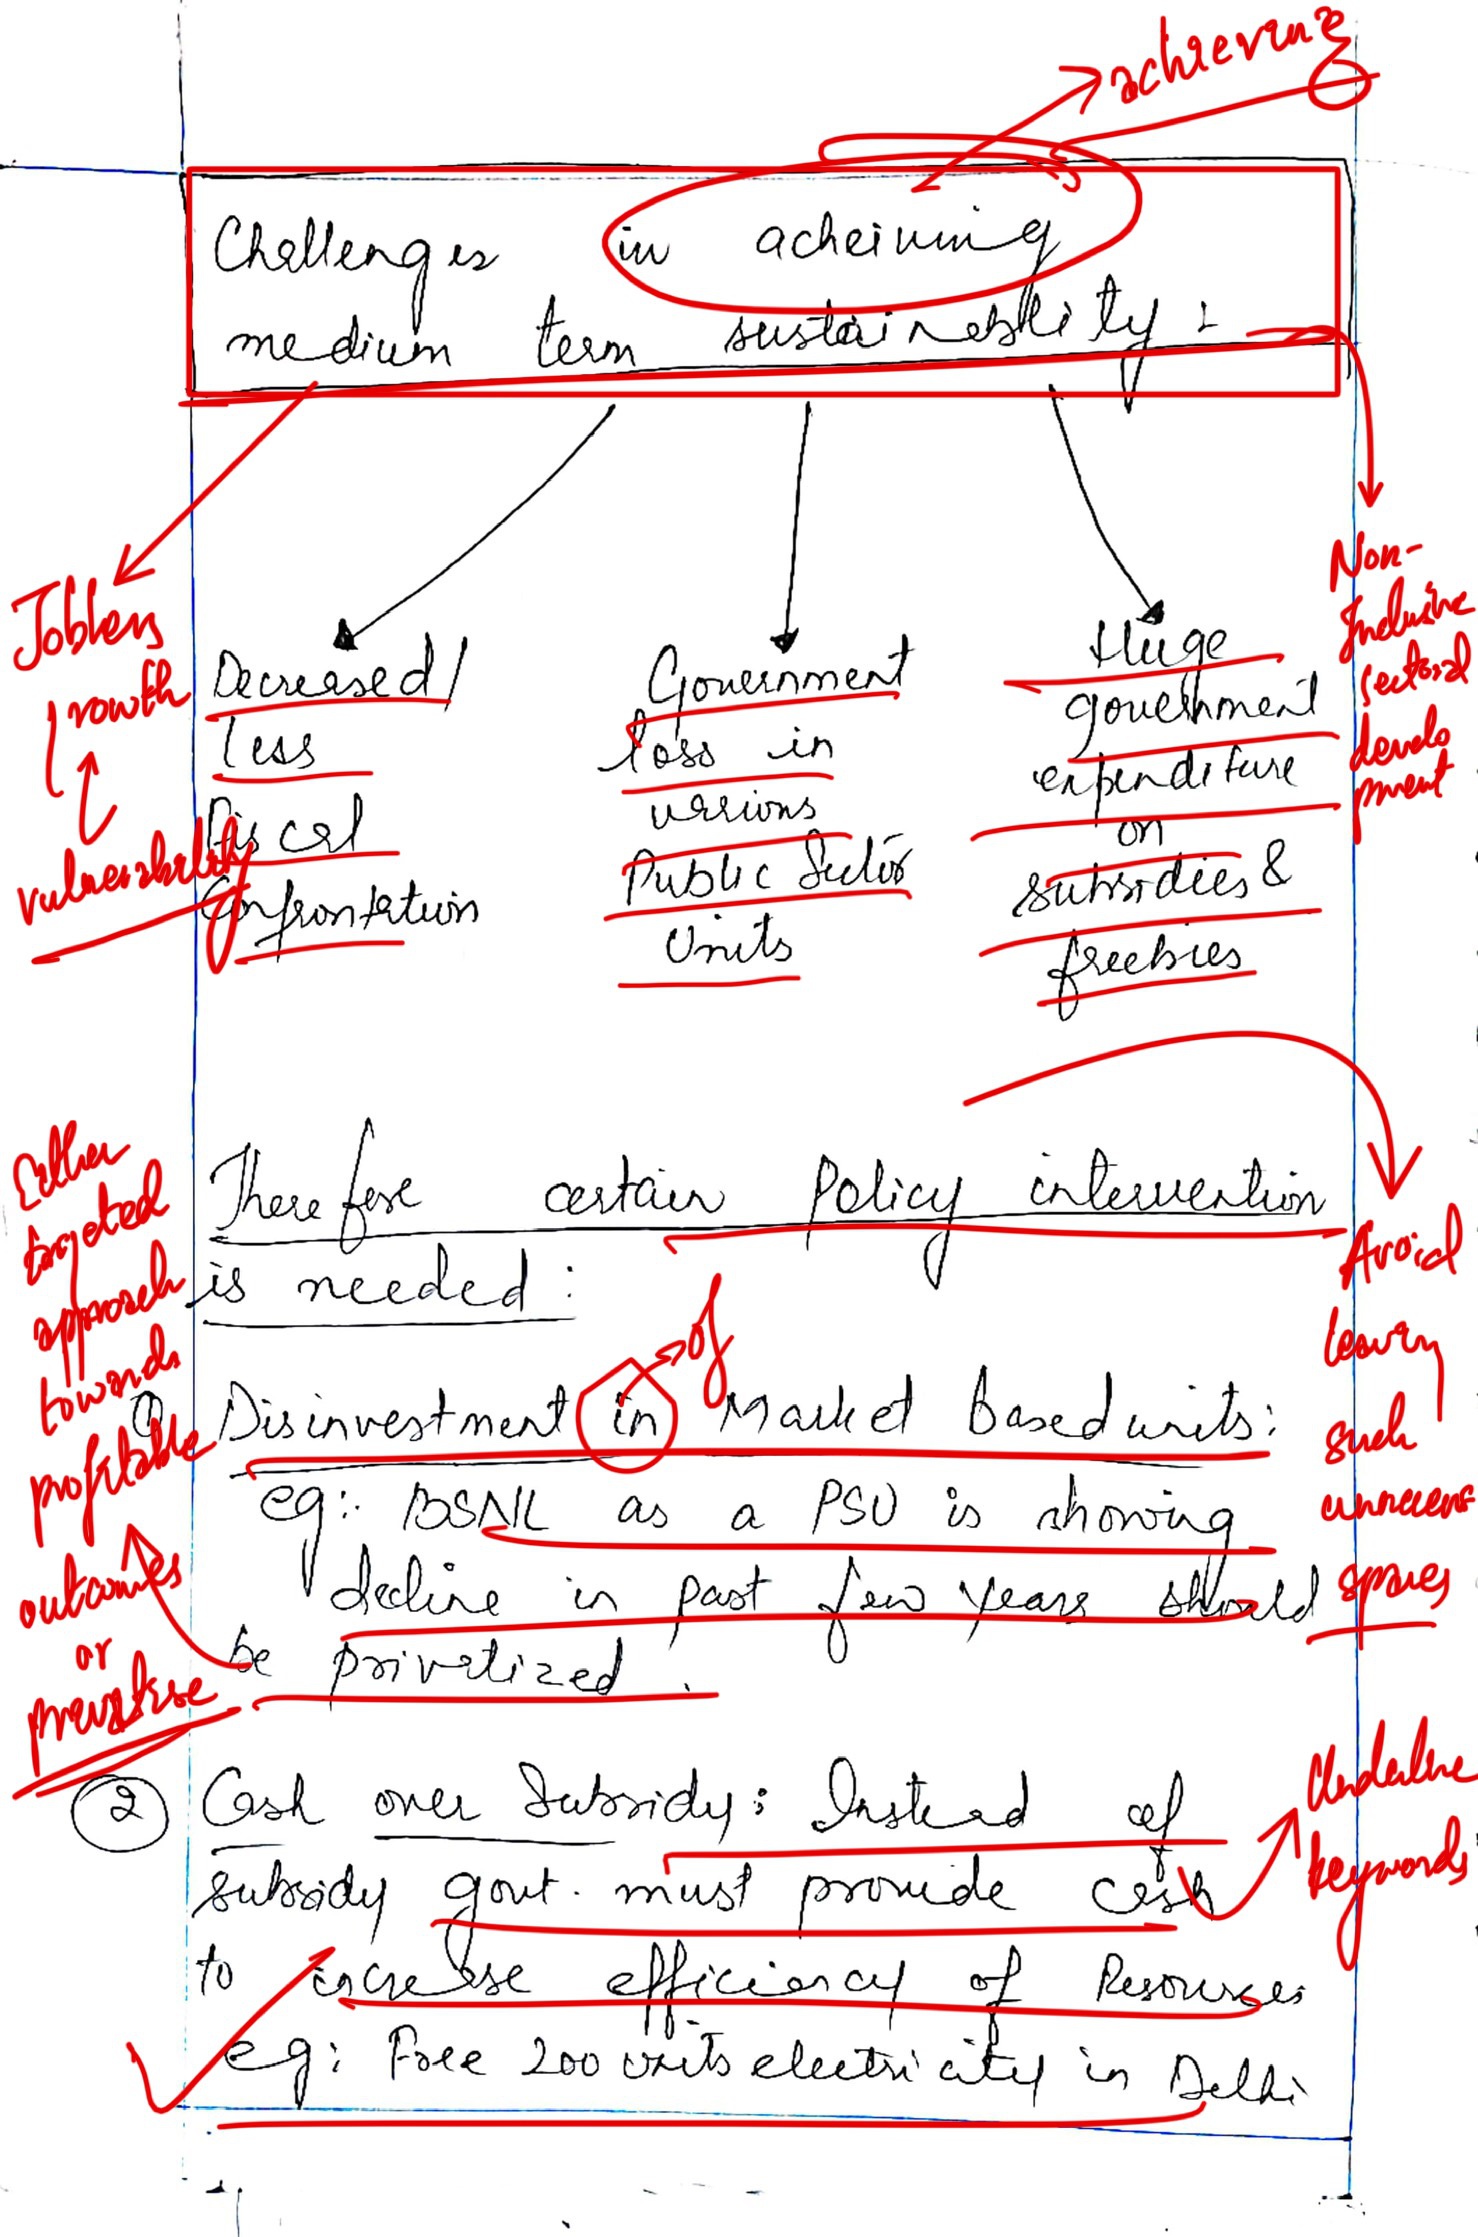 achieving
Challenges in acheiving
medium term sustainablity :
Jobless
growth
vulnerability
Decreased/
less
Fiscal
Confrontation
Government
loss in
various
Public Sector
Units
Huge
government
expenditure
on
subsidies &
freebies
Non-
Inclusive
sectoral
develo
pment
Therefore certain Policy intervention
is needed :
Either
targeted
approach
towards
profitable
outcomes
or
privatise
Avoid
leaving
such
spaces
of
① Disinvestment in Market based units:
eg:. BSNL as a PSU is showing
decline in past few years should
be privatized.
② Cash over Subsidy : Instead of
subsidy govt. must provide cash
to increase efficiency of Resources
eg: Free 200 units electricity in Delhi
Underline
keywords